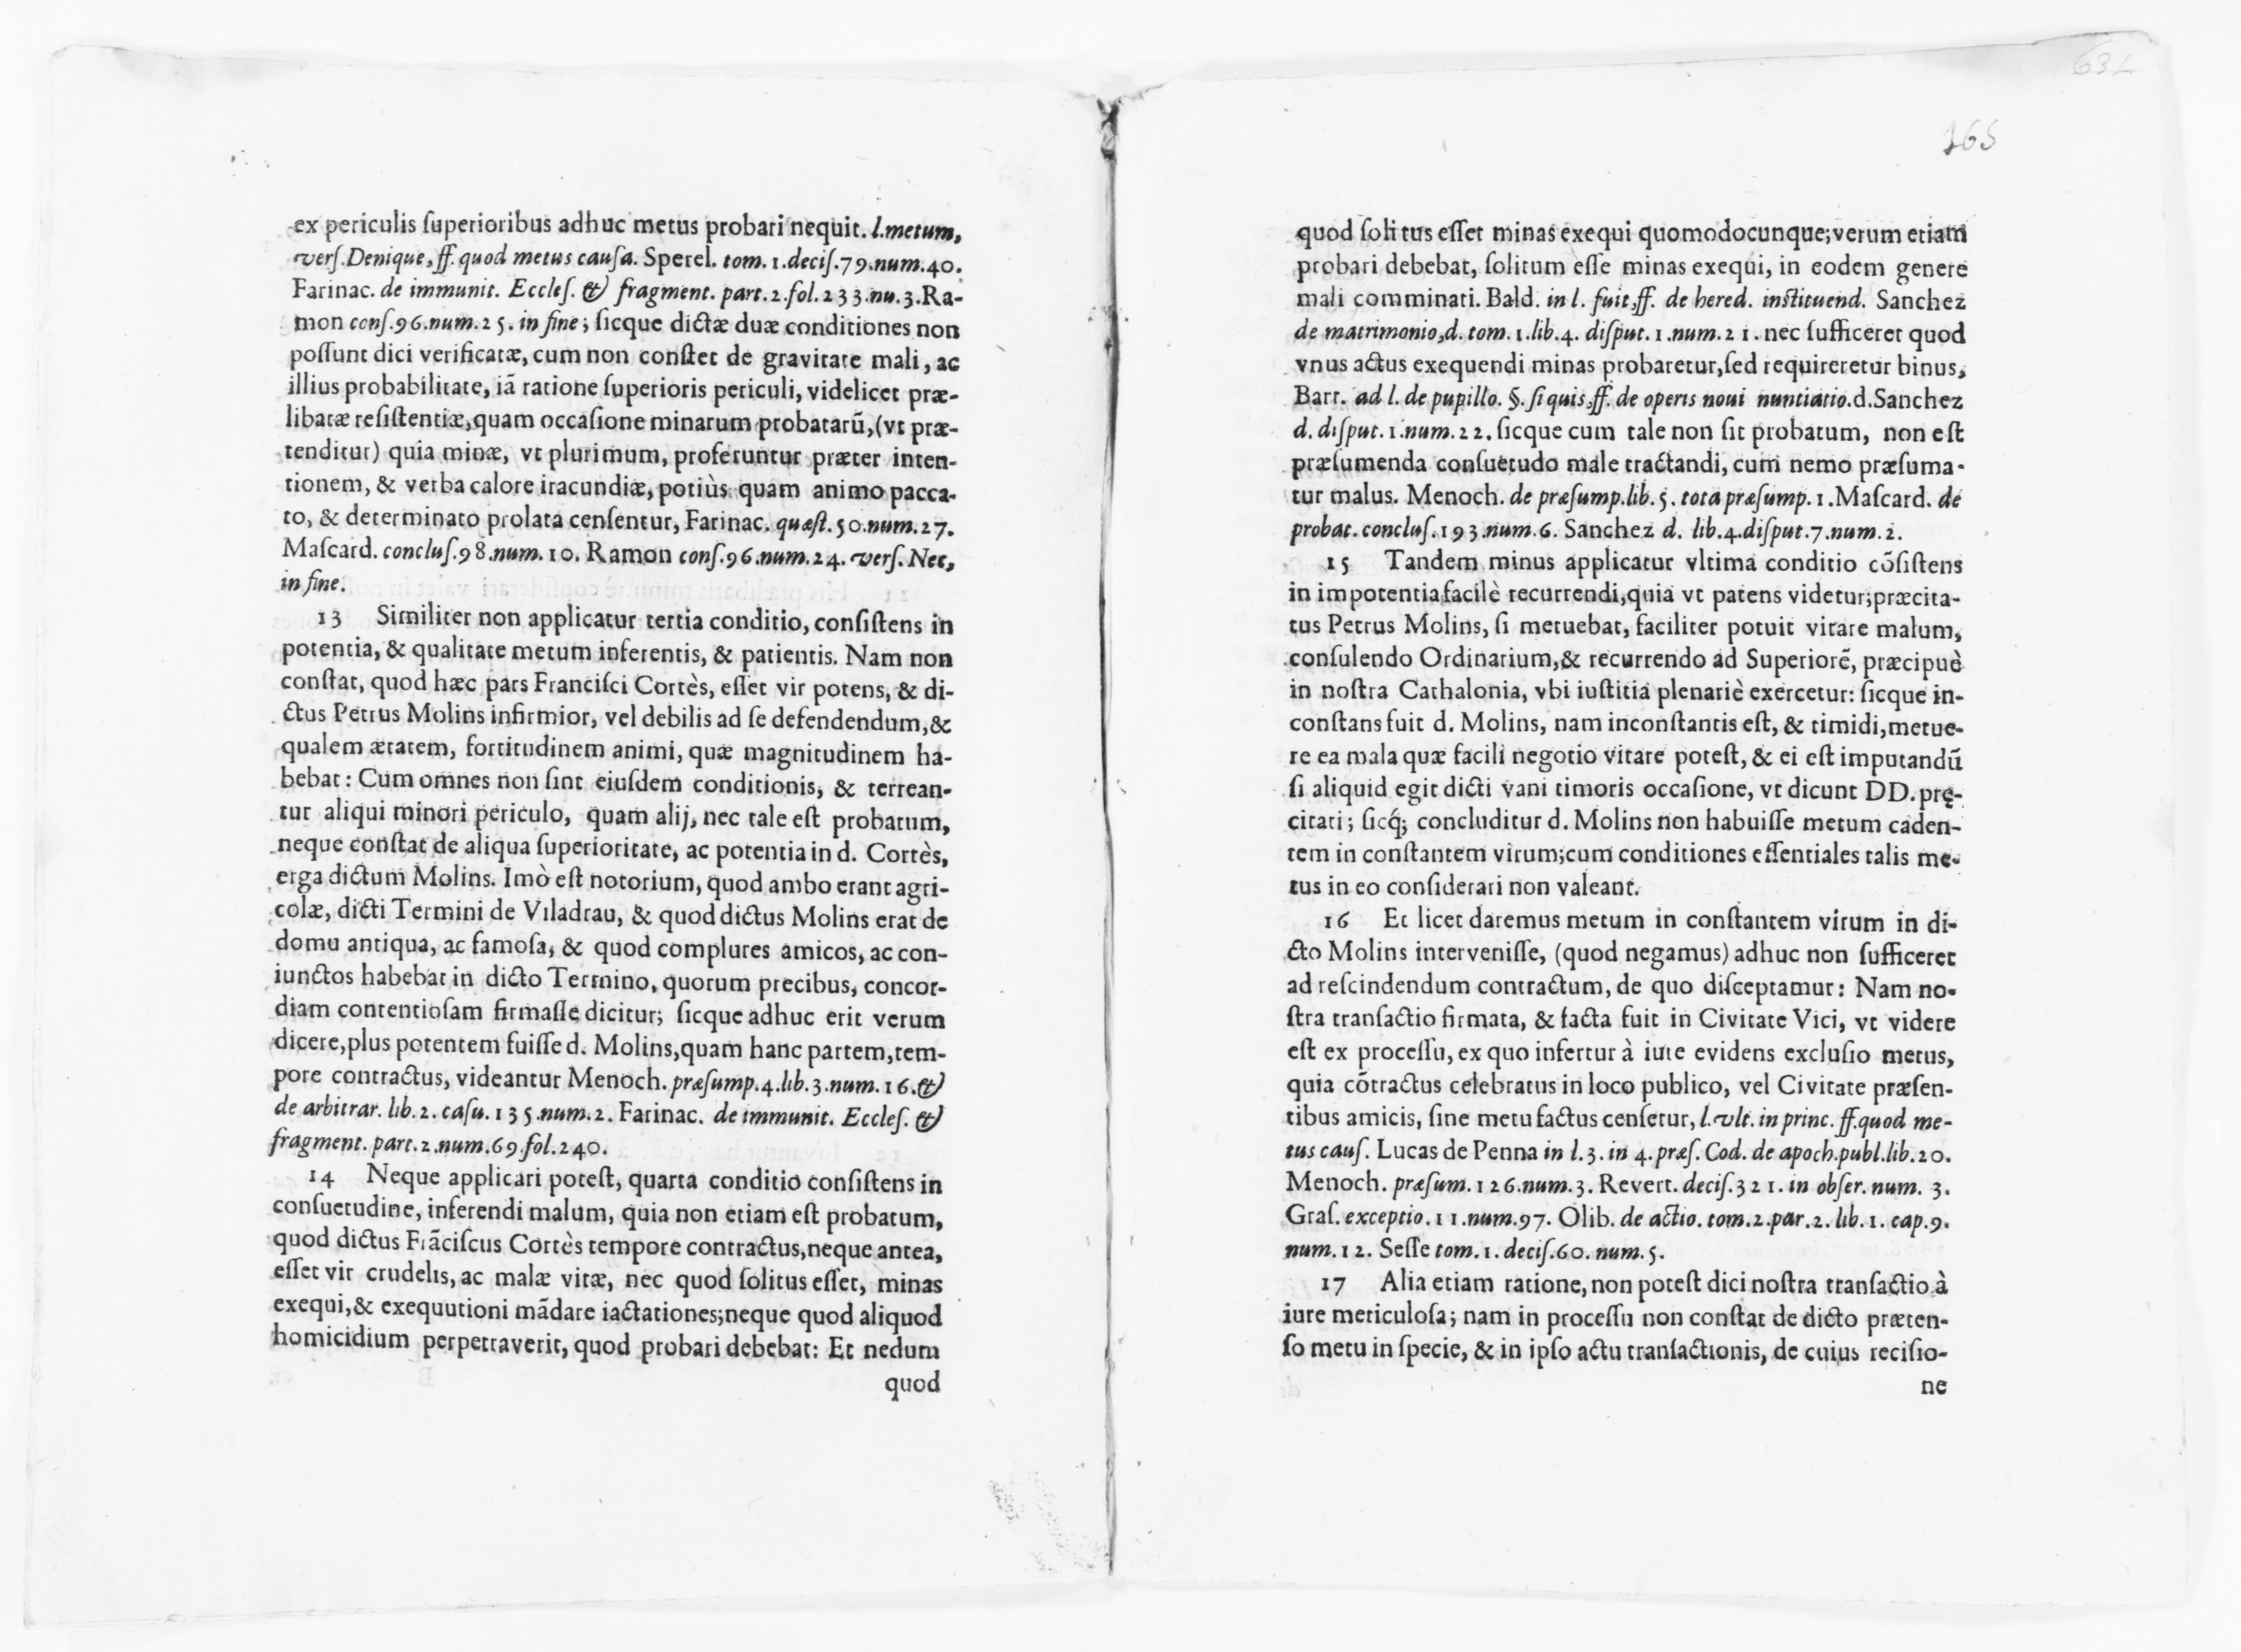 ex periculis ſuperioribus adhuc metus probari nequit. l.metum,
verſ.Denique, ff. quod metus cauſa. Sperel. tom. 1.deciſ.79.num.40.
Farinac. de immunit. Eccleſ. & fragment. part.2.fol.233.nu.3.Ra-
mon conſ.96.num.25. in fine; ſicque dictæ duæ conditiones non
poſſunt dici verificatæ, cum non conſtet de gravitate mali, ac
illius probabilitate, iã ratione ſuperioris periculi, videlicet præ-
libatæ reſiſtentiæ,quam occaſione minarum probatarũ,(vt præ-
tenditur) quia minæ, vt plurimum, proferuntur præter inten-
tionem, & verba calore iracundiæ, potiùs quam animo pacca-
to, & determinato prolata cenſentur, Farinac. quæſt.50.num.27.
Maſcard. concluſ.98.num.10. Ramon conſ.96.num.24. verſ. Nec,
in fine.
13 Similiter non applicatur tertia conditio, conſiſtens in
potentia, & qualitate metum inferentis, & patientis. Nam non
conſtat, quod hæc pars Franciſci Cortès, eſſet vir potens, & di-
ctus Petrus Molins infirmior, vel debilis ad ſe defendendum,&
qualem ætatem, fortitudinem animi, quæ magnitudinem ha-
bebat: Cum omnes non ſint eiuſdem conditionis, & terrean-
tur aliqui minori periculo, quam alij, nec tale eſt probatum,
neque conſtat de aliqua ſuperioritate, ac potentia in d. Cortès,
erga dictum Molins. Imò eſt notorium, quod ambo erant agri-
colæ, dicti Termini de Viladrau, & quod dictus Molins erat de
domu antiqua, ac famoſa, & quod complures amicos, ac con-
iunctos habebat in dicto Termino, quorum precibus, concor-
diam contentioſam firmaſſe dicitur; ſicque adhuc erit verum
dicere,plus potentem fuiſſe d. Molins,quam hanc partem,tem-
pore contractus, videantur Menoch. præſump.4.lib.3.num.16.&
de arbitrar. lib.2. caſu.135.num.2. Farinac. de immunit. Eccleſ. &
fragment. part.2.num.69.fol.240.
14 Neque applicari poteſt, quarta conditio conſiſtens in
conſuetudine, inferendi malum, quia non etiam eſt probatum,
quod dictus Frãciſcus Cortès tempore contractus,neque antea,
eſſet vir crudelis, ac malæ vitæ, nec quod ſolitus eſſet, minas
exequi,& exequutioni mãdare iactationes;neque quod aliquod
homicidium perpetraverit, quod probari debebat: Et nedum
quod
165
quod ſolitus eſſet minas exequi quomodocunque;verum etiam
probari debebat, ſolitum eſſe minas exequi, in eodem genere
mali comminati. Bald. in l. fuit,ff. de hered. inſtituend. Sanchez
de matrimonio,d. tom. 1.lib.4. diſput.1.num.21. nec ſufficeret quod
vnus actus exequendi minas probaretur,ſed requireretur binus,
Bart. ad l. de pupillo. §. ſi quis,ff. de operis noui nuntiatio.d.Sanchez
d. diſput.1.num.22. ſicque cum tale non ſit probatum, non eſt
præſumenda conſuetudo male tractandi, cum nemo præſuma-
tur malus. Menoch. de præſump.lib.5. tota præſump.1.Maſcard. de
probat. concluſ.193.num.6. Sanchez d. lib.4.diſput.7.num.2.
15 Tandem minus applicatur vltima conditio cõſiſtens
in impotentia facilè recurrendi,quia vt patens videtur;præcita-
tus Petrus Molins, ſi metuebat, faciliter potuit vitare malum,
conſulendo Ordinarium,& recurrendo ad Superiorẽ, præcipuè
in noſtra Cathalonia, vbi iuſtitia plenariè exercetur: ſicque in-
conſtans fuit d. Molins, nam inconſtantis eſt, & timidi,metue-
re ea mala quæ facili negotio vitare poteſt, & ei eſt imputandũ
ſi aliquid egit dicti vani timoris occaſione, vt dicunt DD.prę-
citati; ſicq; concluditur d. Molins non habuiſſe metum caden-
tem in conſtantem virum;cum conditiones eſſentiales talis me-
tus in eo conſiderari non valeant.
16 Et licet daremus metum in conſtantem virum in di-
cto Molins interveniſſe, (quod negamus) adhuc non ſufficeret
ad reſcindendum contractum, de quo diſceptamur: Nam no-
ſtra tranſactio firmata, & facta fuit in Civitate Vici, vt videre
eſt ex proceſſu, ex quo infertur à iure evidens excluſio metus,
quia cõtractus celebratus in loco publico, vel Civitate præſen-
tibus amicis, ſine metu factus cenſetur, l.vlt. in princ. ff.quod me-
tus cauſ. Lucas de Penna in l.3. in 4. præſ. Cod. de apoch.publ.lib.20.
Menoch. præſum.126.num.3. Revert. deciſ.321. in obſer. num. 3.
Graſ. exceptio.11.num.97. Olib. de actio. tom.2.par.2. lib.1. cap.9.
num.12. Seſſe tom.1. deciſ.60. num.5.
17 Alia etiam ratione, non poteſt dici noſtra tranſactio à
iure meticuloſa; nam in proceſſu non conſtat de dicto præten-
ſo metu in ſpecie, & in ipſo actu tranſactionis, de cuius reciſio-
ne